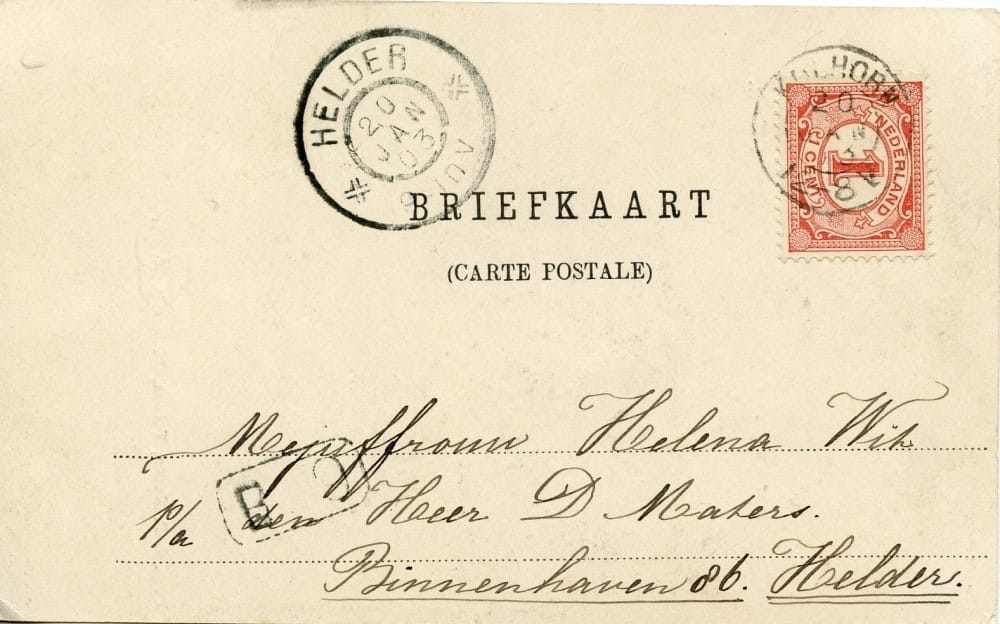 HELDER
20
JAN
03
BRIEFKAART
(CARTE POSTALE)
20
NEDERLAND
1
1 CENT
Mejuffrouw Helena Wit
P/a den Heer D Maters.
Binnenhaven 86. Helder.
B